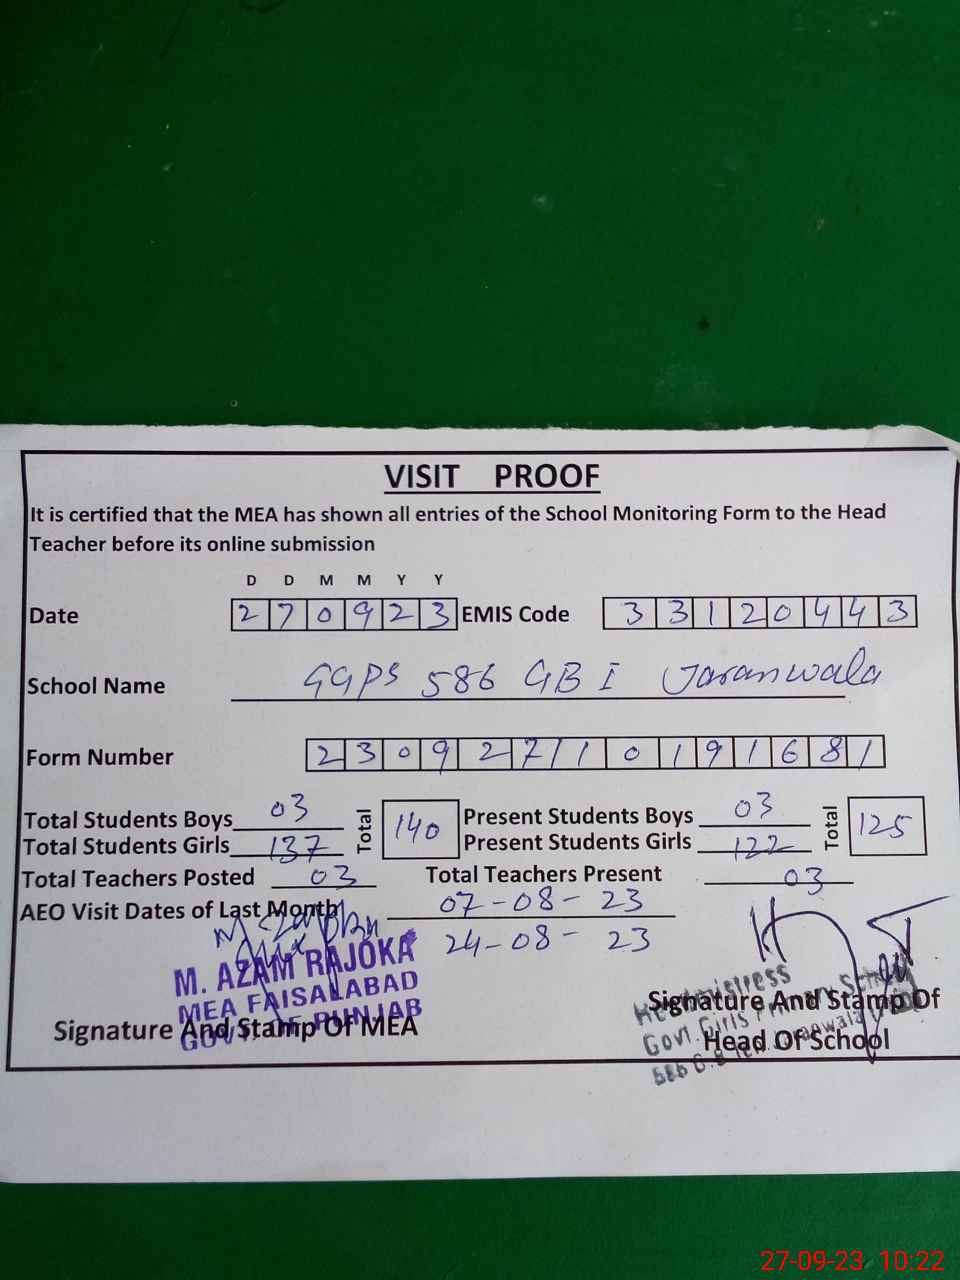 VISIT PROOF
It is certified that the MEA has shown all entries of the School Monitoring Form to the Head
Teacher before its online submission
D D M M Y Y
Date 270923 EMIS Code 33120443
School Name GGPS 586 GB I Jaranwala
Form Number 23092710191681
Total Students Boys 03 Total 140 Present Students Boys 03 Total 125
Total Students Girls 137 Present Students Girls 122
Total Teachers Posted 03 Total Teachers Present 03
AEO Visit Dates of Last Month 07-08-23
24-08-23
M. AZAM RAJOKA
MEA FAISALABAD
GOVT. OF PUNJAB
Signature And Stamp Of MEA
Headmistress
Govt. Girls Primary School
586 G.B Teh. Jaranwala
Signature And Stamp Of
Head Of School
27-09-23 10:22